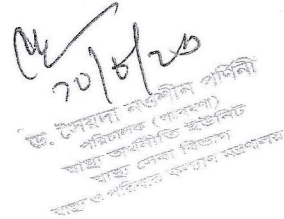 ২০/৮/২৩
ড. সৈয়দা নওশীন পর্ণিনী
পরিচালক (গবেষণা)
স্বাস্থ্য অর্থনীতি ইউনিট
স্বাস্থ্য সেবা বিভাগ
স্বাস্থ্য ও পরিবার কল্যাণ মন্ত্রণালয়